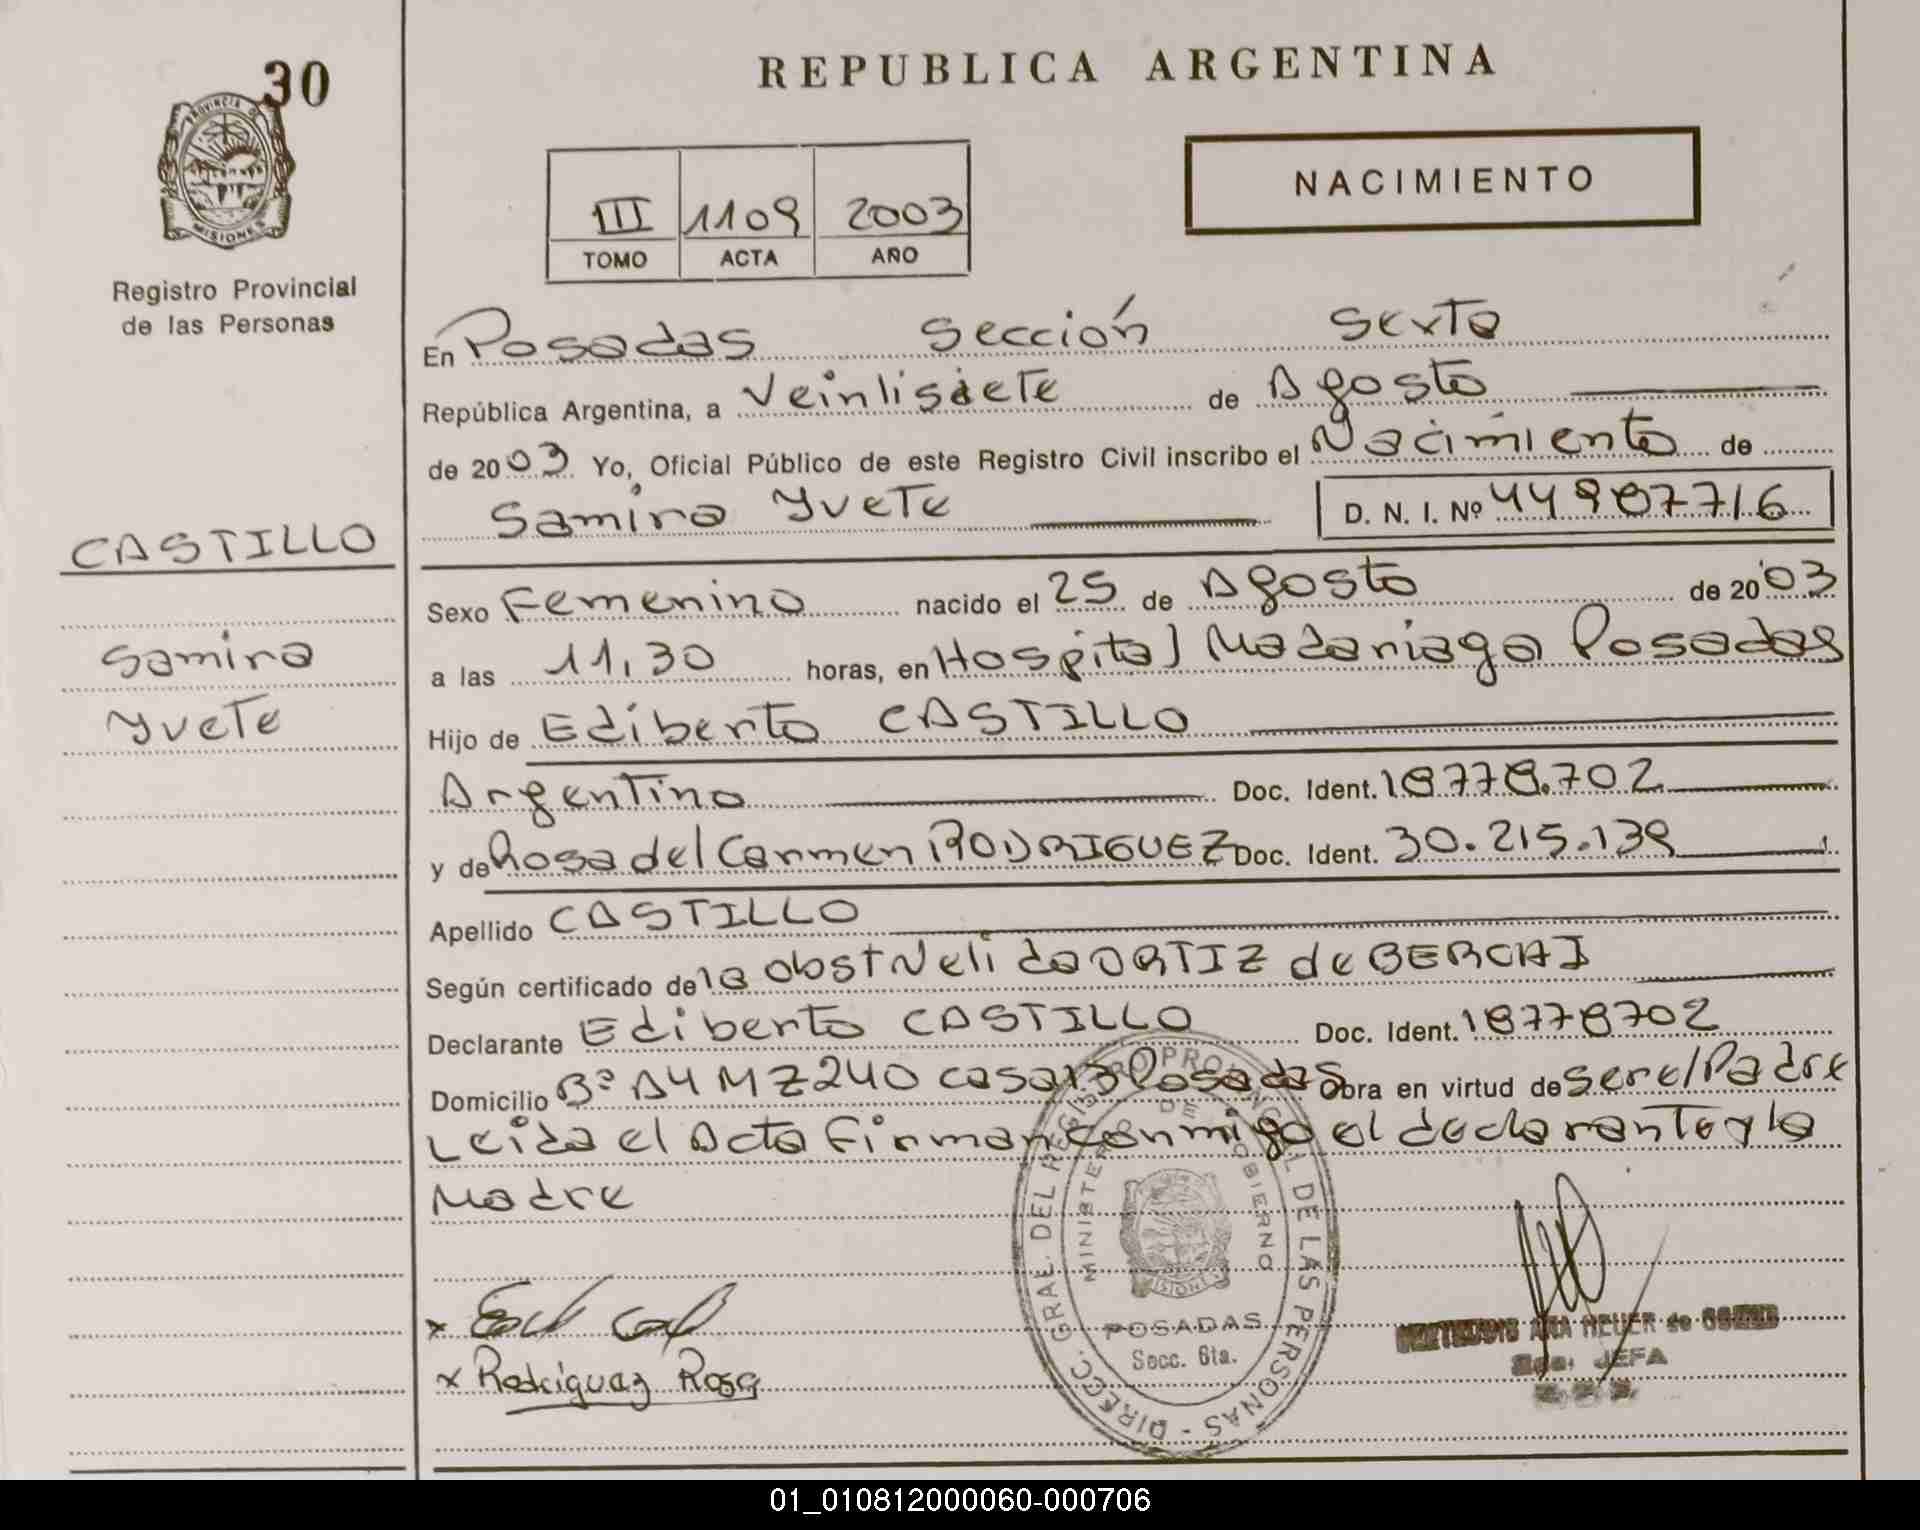 30
PROVINCIA DE
MISIONES
Registro Provincial
de las Personas
CASTILLO
Samira
Yvete
REPUBLICA ARGENTINA
III 1109 2003
TOMO ACTA AÑO
NACIMIENTO
En Posadas Sección Sexta
República Argentina, a Veintisiete de Agosto
de 2003 Yo, Oficial Público de este Registro Civil inscribo el Nacimiento de
Samira Yvete D. N. I. Nº 44987716
Sexo Femenino nacido el 25 de Agosto de 2003
a las 11,30 horas, en Hospital Madariaga Posadas
Hijo de Ediberto CASTILLO
Argentino Doc. Ident. 18778.702
y de Rosa del Carmen RODRIGUEZ Doc. Ident. 30.215.139
Apellido CASTILLO
Según certificado de la Obst Nelida ORTIZ de
Declarante Ediberto CASTILLO Doc. Ident. 18778702
Domicilio Bº A4 MZ240 casa13 Posadas Obra en virtud de ser el Padre
Leida el Acta Firman conmigo el declarante y la
Madre
DIRECC. GRAL. DEL REGISTRO PROVINCIAL DE LAS PERSONAS
MINISTERIO DE GOBIERNO
MISIONES
POSADAS
Secc. 6ta.
x
x Rodriguez Rosa
ANA NEUER de
JEFA
01_010812000060-000706